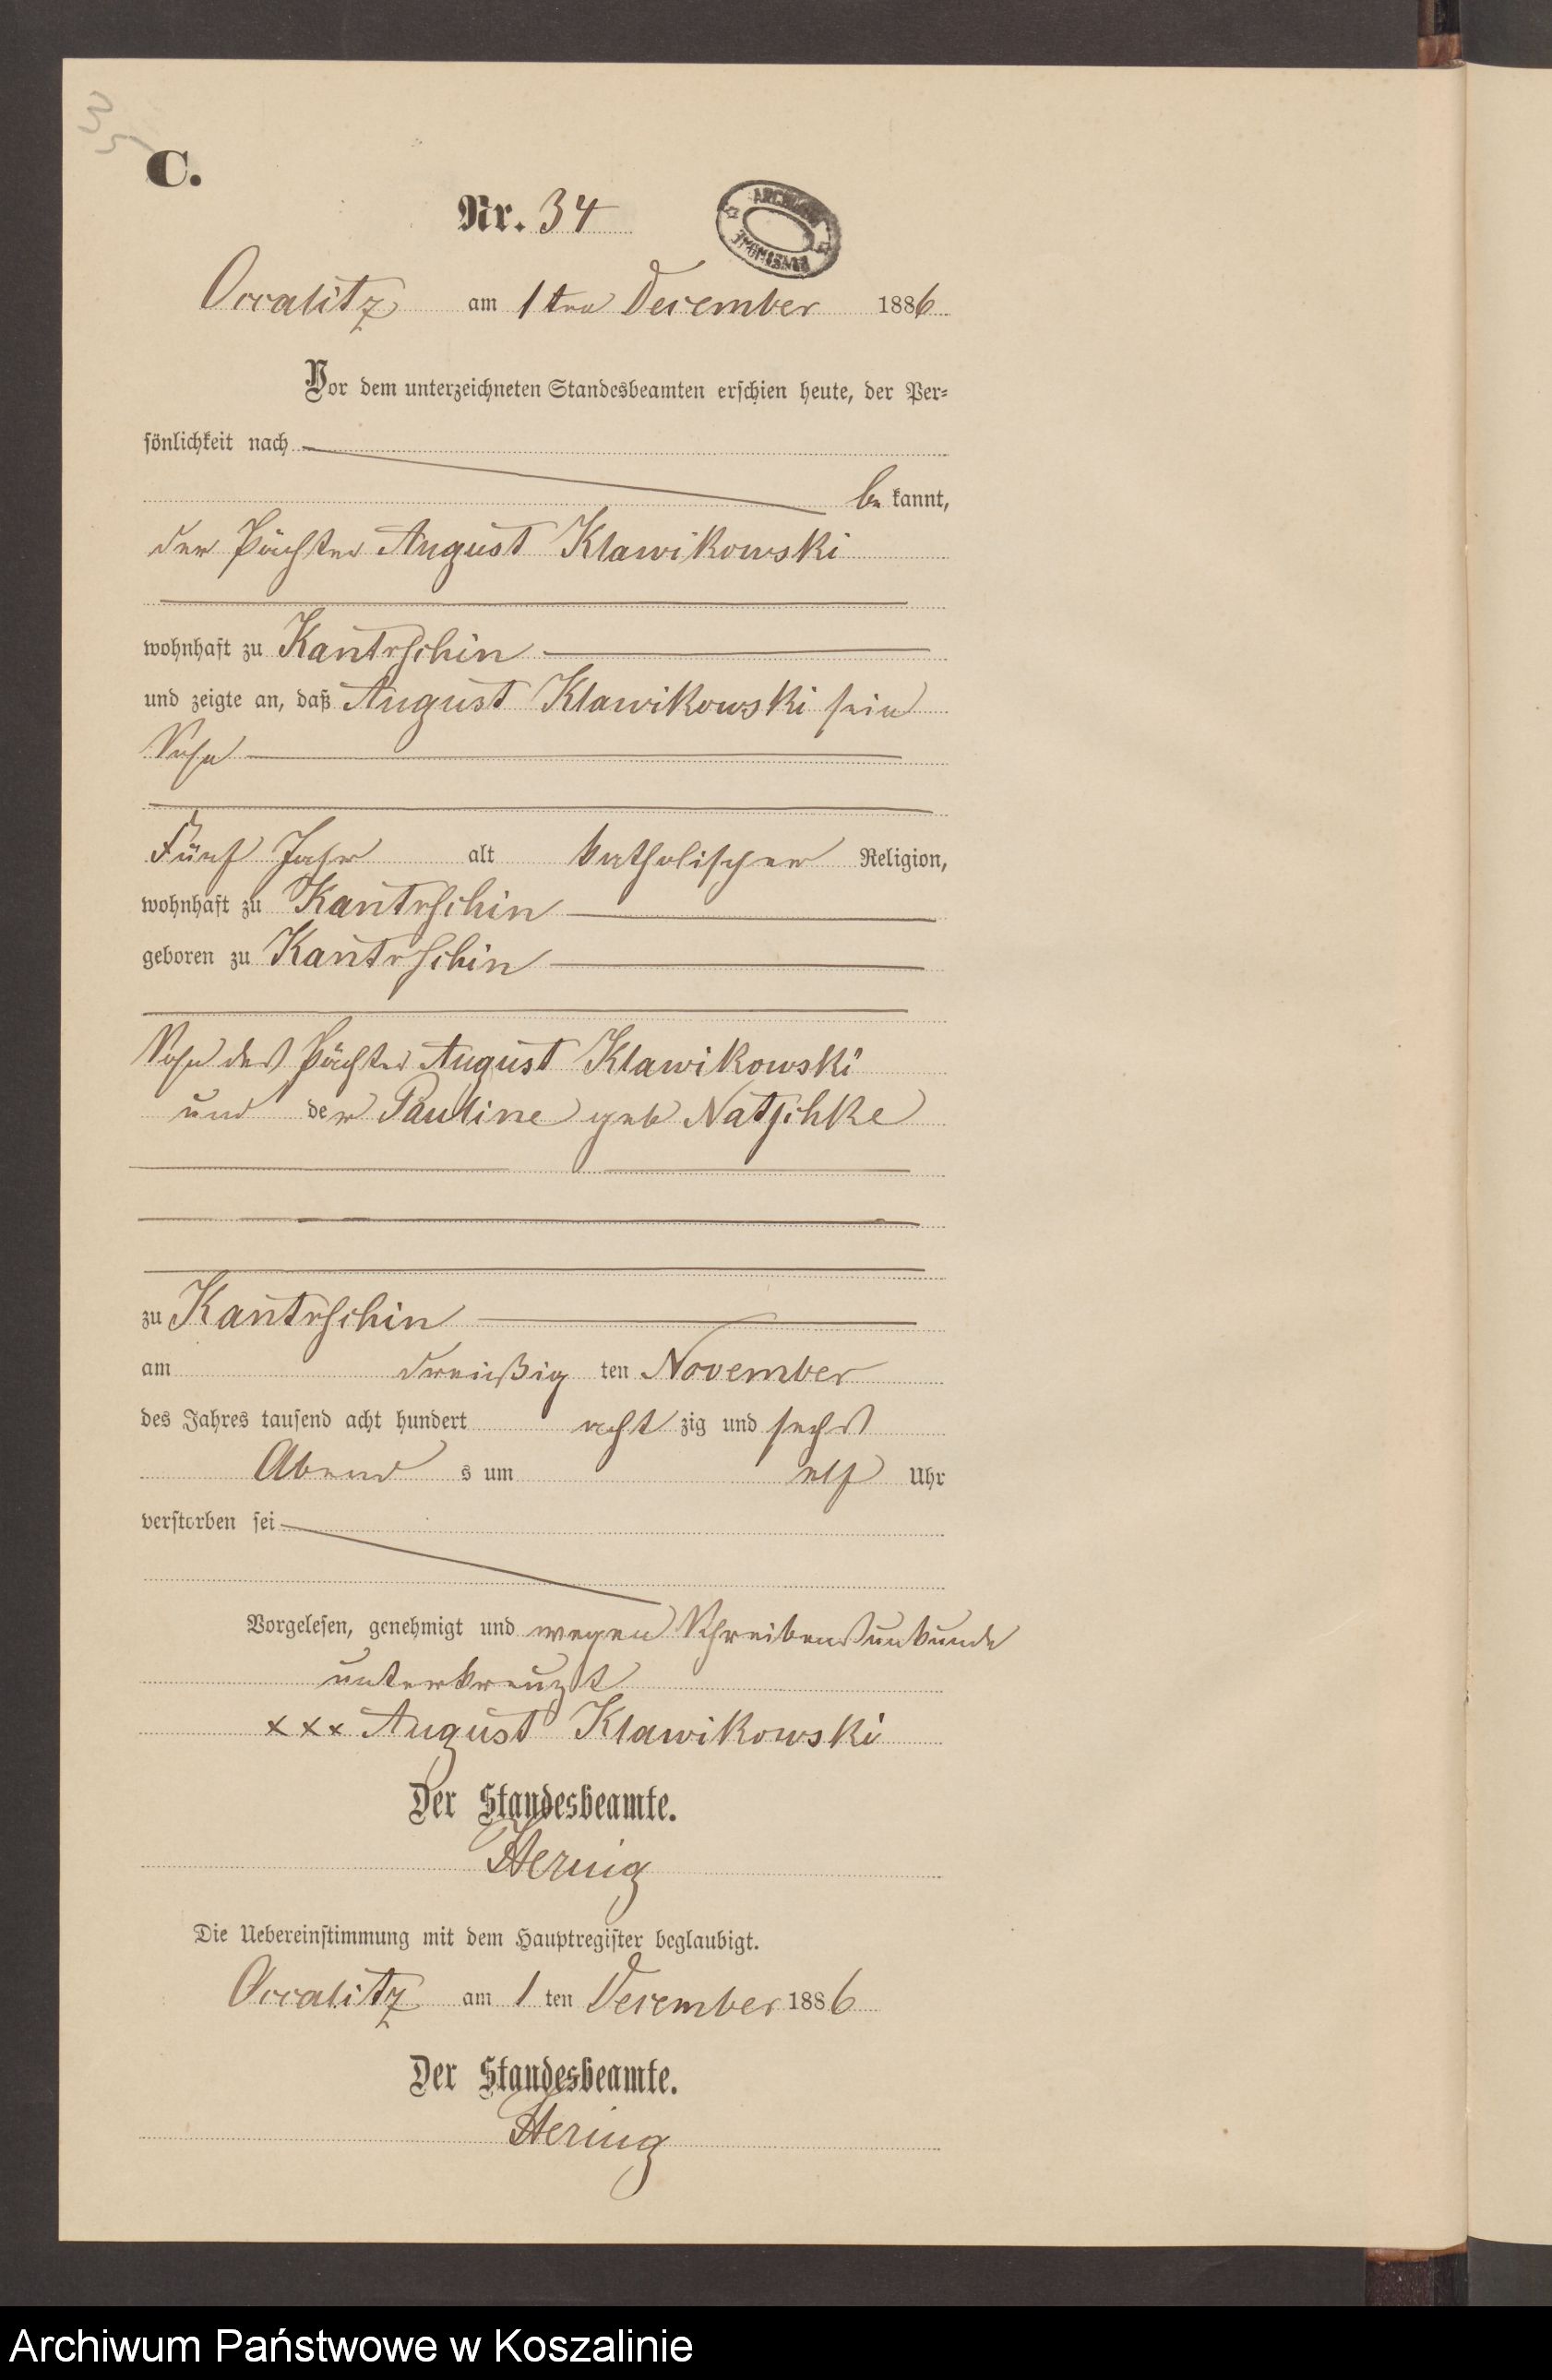 35
C.
Nr. 34
Occalitz am 1ten December 1886
Vor dem unterzeichneten Standesbeamten erschien heute, der Per-
sönlichkeit nach
be kannt,
der Pächter August Klawikowski
wohnhaft zu Kantrschin
und zeigte an, daß August Klawikowski sein
Sohn
Fünf Jahr alt katholischer Religion,
wohnhaft zu Kantrschin
geboren zu Kantrschin
Sohn des Pächter August Klawikowski
und der Pauline geb Natschke
zu Kantrschin
am dreißig ten November
des Jahres tausend acht hundert acht zig und sechs
Abend s um elf Uhr
verstorben sei
Vorgelesen, genehmigt und wegen Schreibensunkunde
unterkreuzt
xxx August Klawikowski
Der Standesbeamte.
Hering
Die Uebereinstimmung mit dem Hauptregister beglaubigt.
Occalitz am 1 ten December 1886
Der Standesbeamte.
Hering
Archiwum Państwowe w Koszalinie